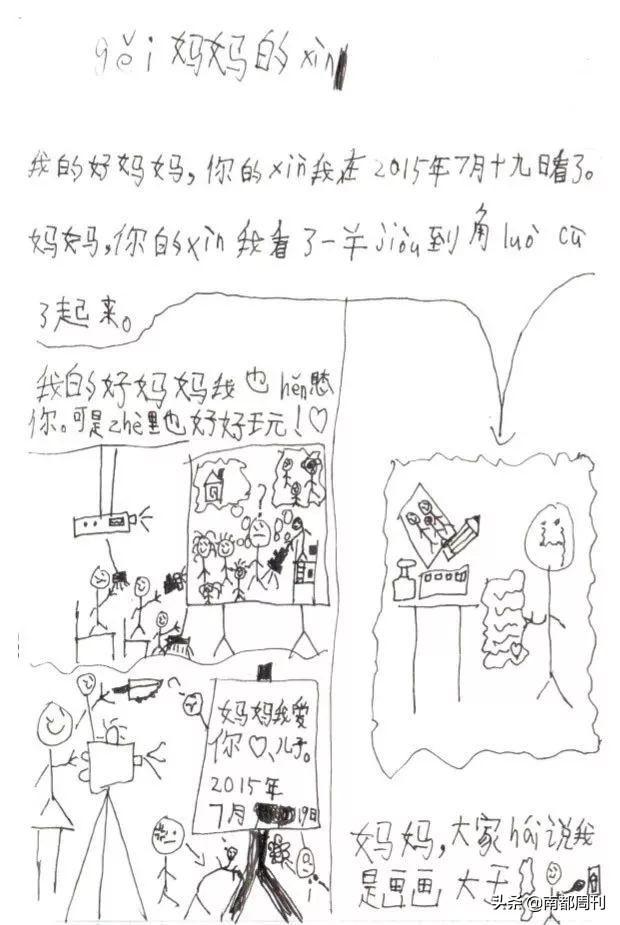 gěi 妈妈的 xìn
我的好妈妈，你的xìn我在2015年7月十九日看了。
妈妈，你的xìn我看了一半jiòu到角luò cū
了起来。
我的好妈妈我也hěn想
你。可是zhè里也好好玩！♡
?
妈妈我爱
你♡、儿子。
2015年
7月19日
妈妈，大家hái说我
是画画大王
头条 @南都周刊